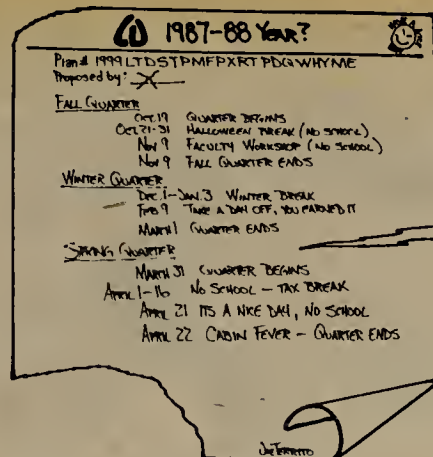 1987-88 YEAR?
Plan# 1999 LTDSTPMFPXRTPDQWHYME
Proposed by: X
FALL QUARTER
OCT. 19 QUARTER BEGINS
OCT. 21-31 HALLOWEEN BREAK (NO SCHOOL)
NOV 9 FACULTY WORKSHOP (NO SCHOOL)
NOV 9 FALL QUARTER ENDS
WINTER QUARTER
DEC. 1-JAN. 3 WINTER BREAK
FEB 9 TAKE A DAY OFF, YOU EARNED IT
MARCH 1 QUARTER ENDS
SPRING QUARTER
MARCH 31 QUARTER BEGINS
APRIL 1-16 NO SCHOOL - TAX BREAK
APRIL 21 ITS A NICE DAY, NO SCHOOL
APRIL 22 CABIN FEVER - QUARTER ENDS